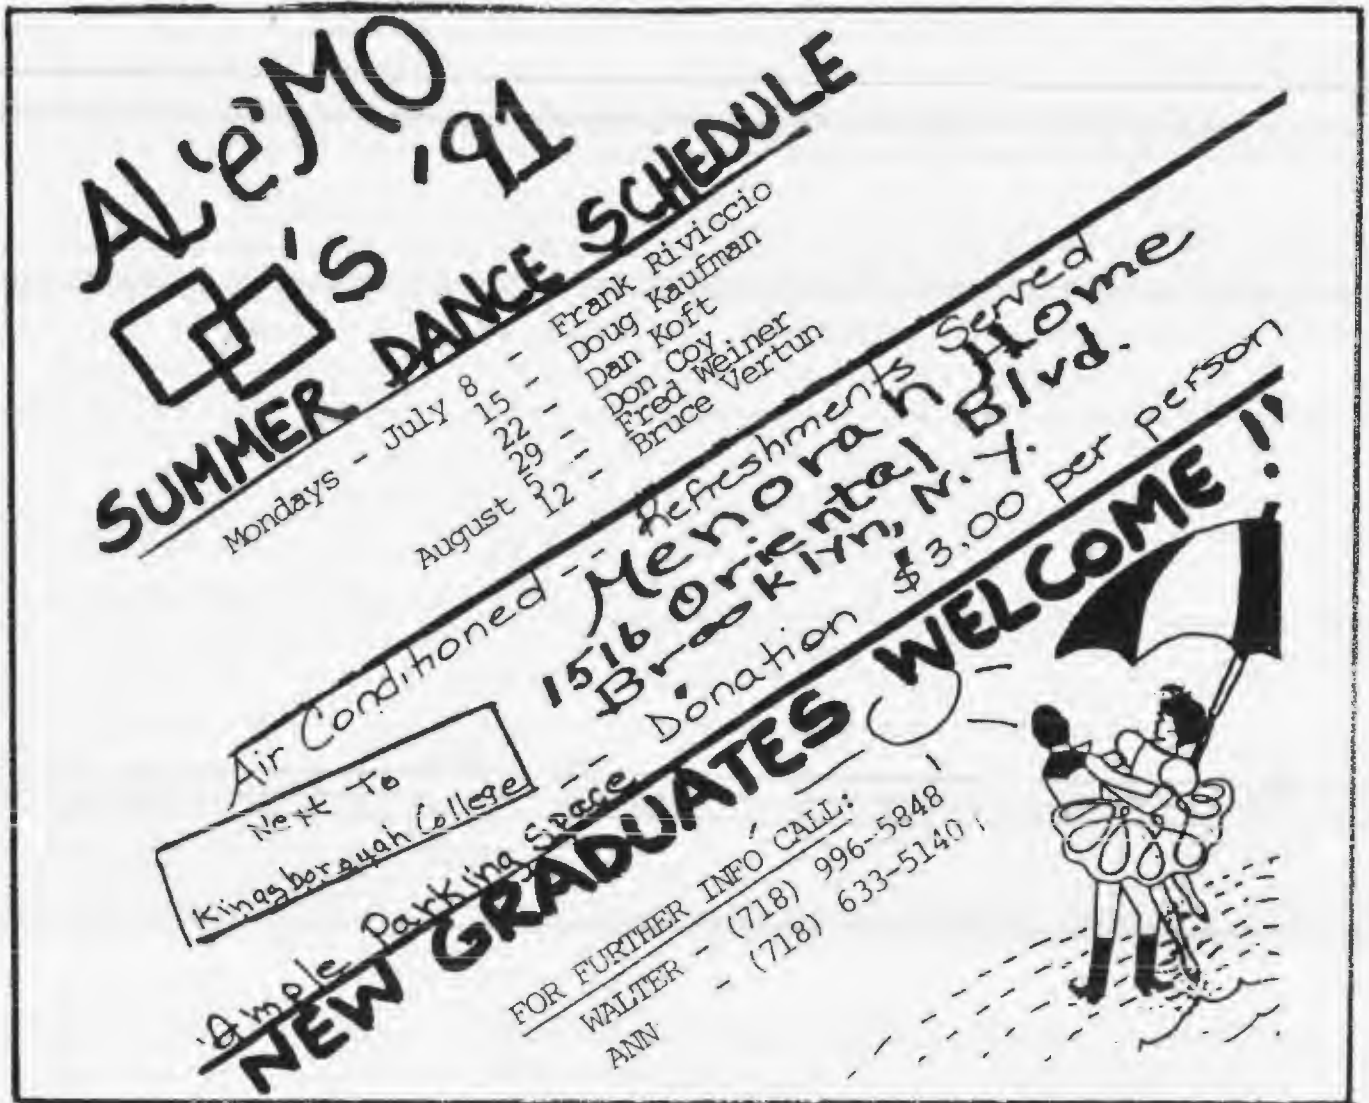 AL 'e' MO
's '91
SUMMER DANCE SCHEDULE
Mondays - July 8 - Frank Riviccio
15 - Doug Kaufman
22 - Dan Koft
29 - Don Coy
August 5 - Fred Weiner
12 - Bruce Vertun
Air Conditioned -- Refreshments Served
Menorah Home
1516 Oriental Blvd.
Brooklyn, N.Y.
Next To
Kingsborough College
Ample Parking Space --- Donation $3,00 per person
NEW GRADUATES WELCOME !!
FOR FURTHER INFO CALL:
WALTER - (718) 996-5848
ANN - (718) 633-5140